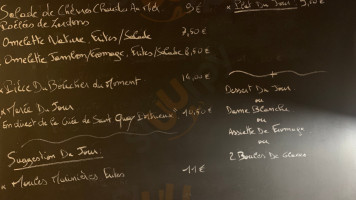 Salade de Chèvres Chauds Aux Noix 9€
Poêlée de Lardons
Omelette Nature Frites/Salade 7,50€
Omelette Jambon/Fromage, Frites/Salade 8,50€
* Pièce Du Boucher du Moment 14,00€
* Marée Du Jour
En direct de la Criée de Saint Quay 10,50€
Suggestion Du Jour:
* Moules Marinières Frites 11€
* Plat Du Jour: 9,50€
Dessert Du Jour
ou
Dame Blanche
ou
Assiette De Fromage
ou
2 Boules De Glace